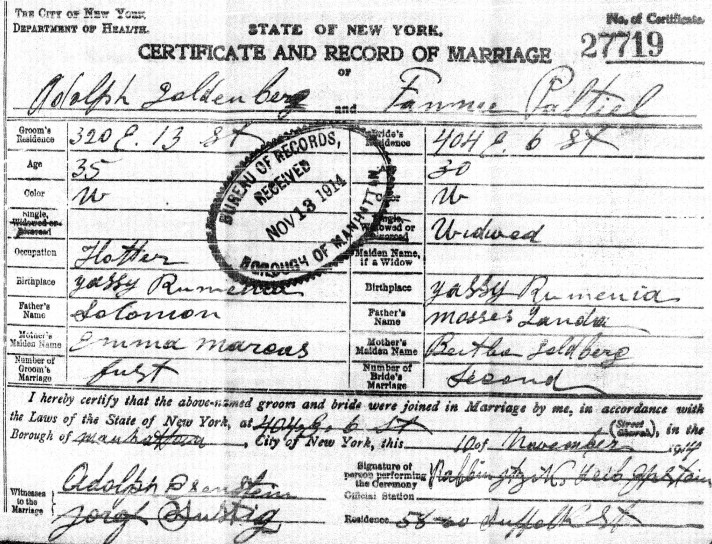 THE CITY OF NEW YORK.
DEPARTMENT OF HEALTH.
STATE OF NEW YORK.
No. of Certificate
27719
CERTIFICATE AND RECORD OF MARRIAGE
OF
Adolph Goldenberg and Fannie Paltiel
Groom's Residence 320 E. 13 St
Bride's Residence 404 E. 6 St
Age 35
30
Color W
W
Single, Widowed or Divorced
Single, Widowed or Divorced Widwed
Occupation Hatter
Maiden Name, if a Widow
Birthplace yassy Rumenia
Birthplace yassy Rumenia
Father's Name Solomon
Father's Name Mosses Landa
Mother's Maiden Name Emma Marcus
Mother's Maiden Name Bertha Goldberg
Number of Groom's Marriage first
Number of Bride's Marriage Second
BUREAU OF RECORDS,
RECEIVED
NOV 13 1914
BOROUGH OF MANHATTAN
I hereby certify that the above-named groom and bride were joined in Marriage by me, in accordance with
the Laws of the State of New York, at 404 E. 6 St (Street Church), in the
Borough of Manhattan, City of New York, this 10 of November 1914
Witnesses to the Marriage
Adolph
Signature of person performing the Ceremony Rabbi
Official Station
Residence 58-60 Suffolk St